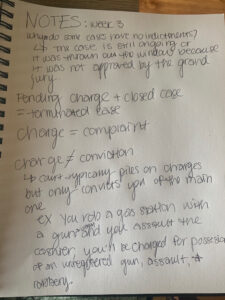 NOTES: week 3
why do some cases have no indictments?
↳ the case is still ongoing or
it was thrown out the window because
it was not approved by the grand
jury.
Pending charge + closed case
= terminated case
charge = complaint
charge ≠ conviction
↳ court typically piles on charges
but only convicts you of the main
one
ex You rob a gas station with
a gun and you assault the
cashier, you'll be charged for possesion
of an unregistered gun, assault, +
robbery.